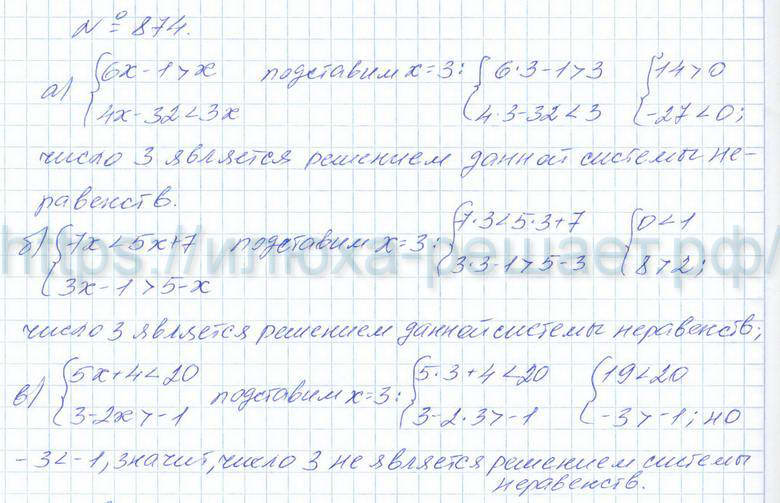 № 874.
а) { 6x-1>x подставим x=3: { 6·3-1>3 { 14>0
4x-32<3x 4·3-32<3 -27<0;
число 3 является решением данной системы не-
равенств.
б) { 7x<5x+7 подставим x=3: { 7·3<5·3+7 { 0<1
3x-1>5-x 3·3-1>5-3 8>2;
https://илюха-решает.рф/
число 3 является решением данной системы неравенств;
в) { 5x+4<20 подставим x=3: { 5·3+4<20 { 19<20
3-2x>-1 3-2·3>-1 -3>-1; но
-3<-1, значит, число 3 не является решением системы
неравенств.